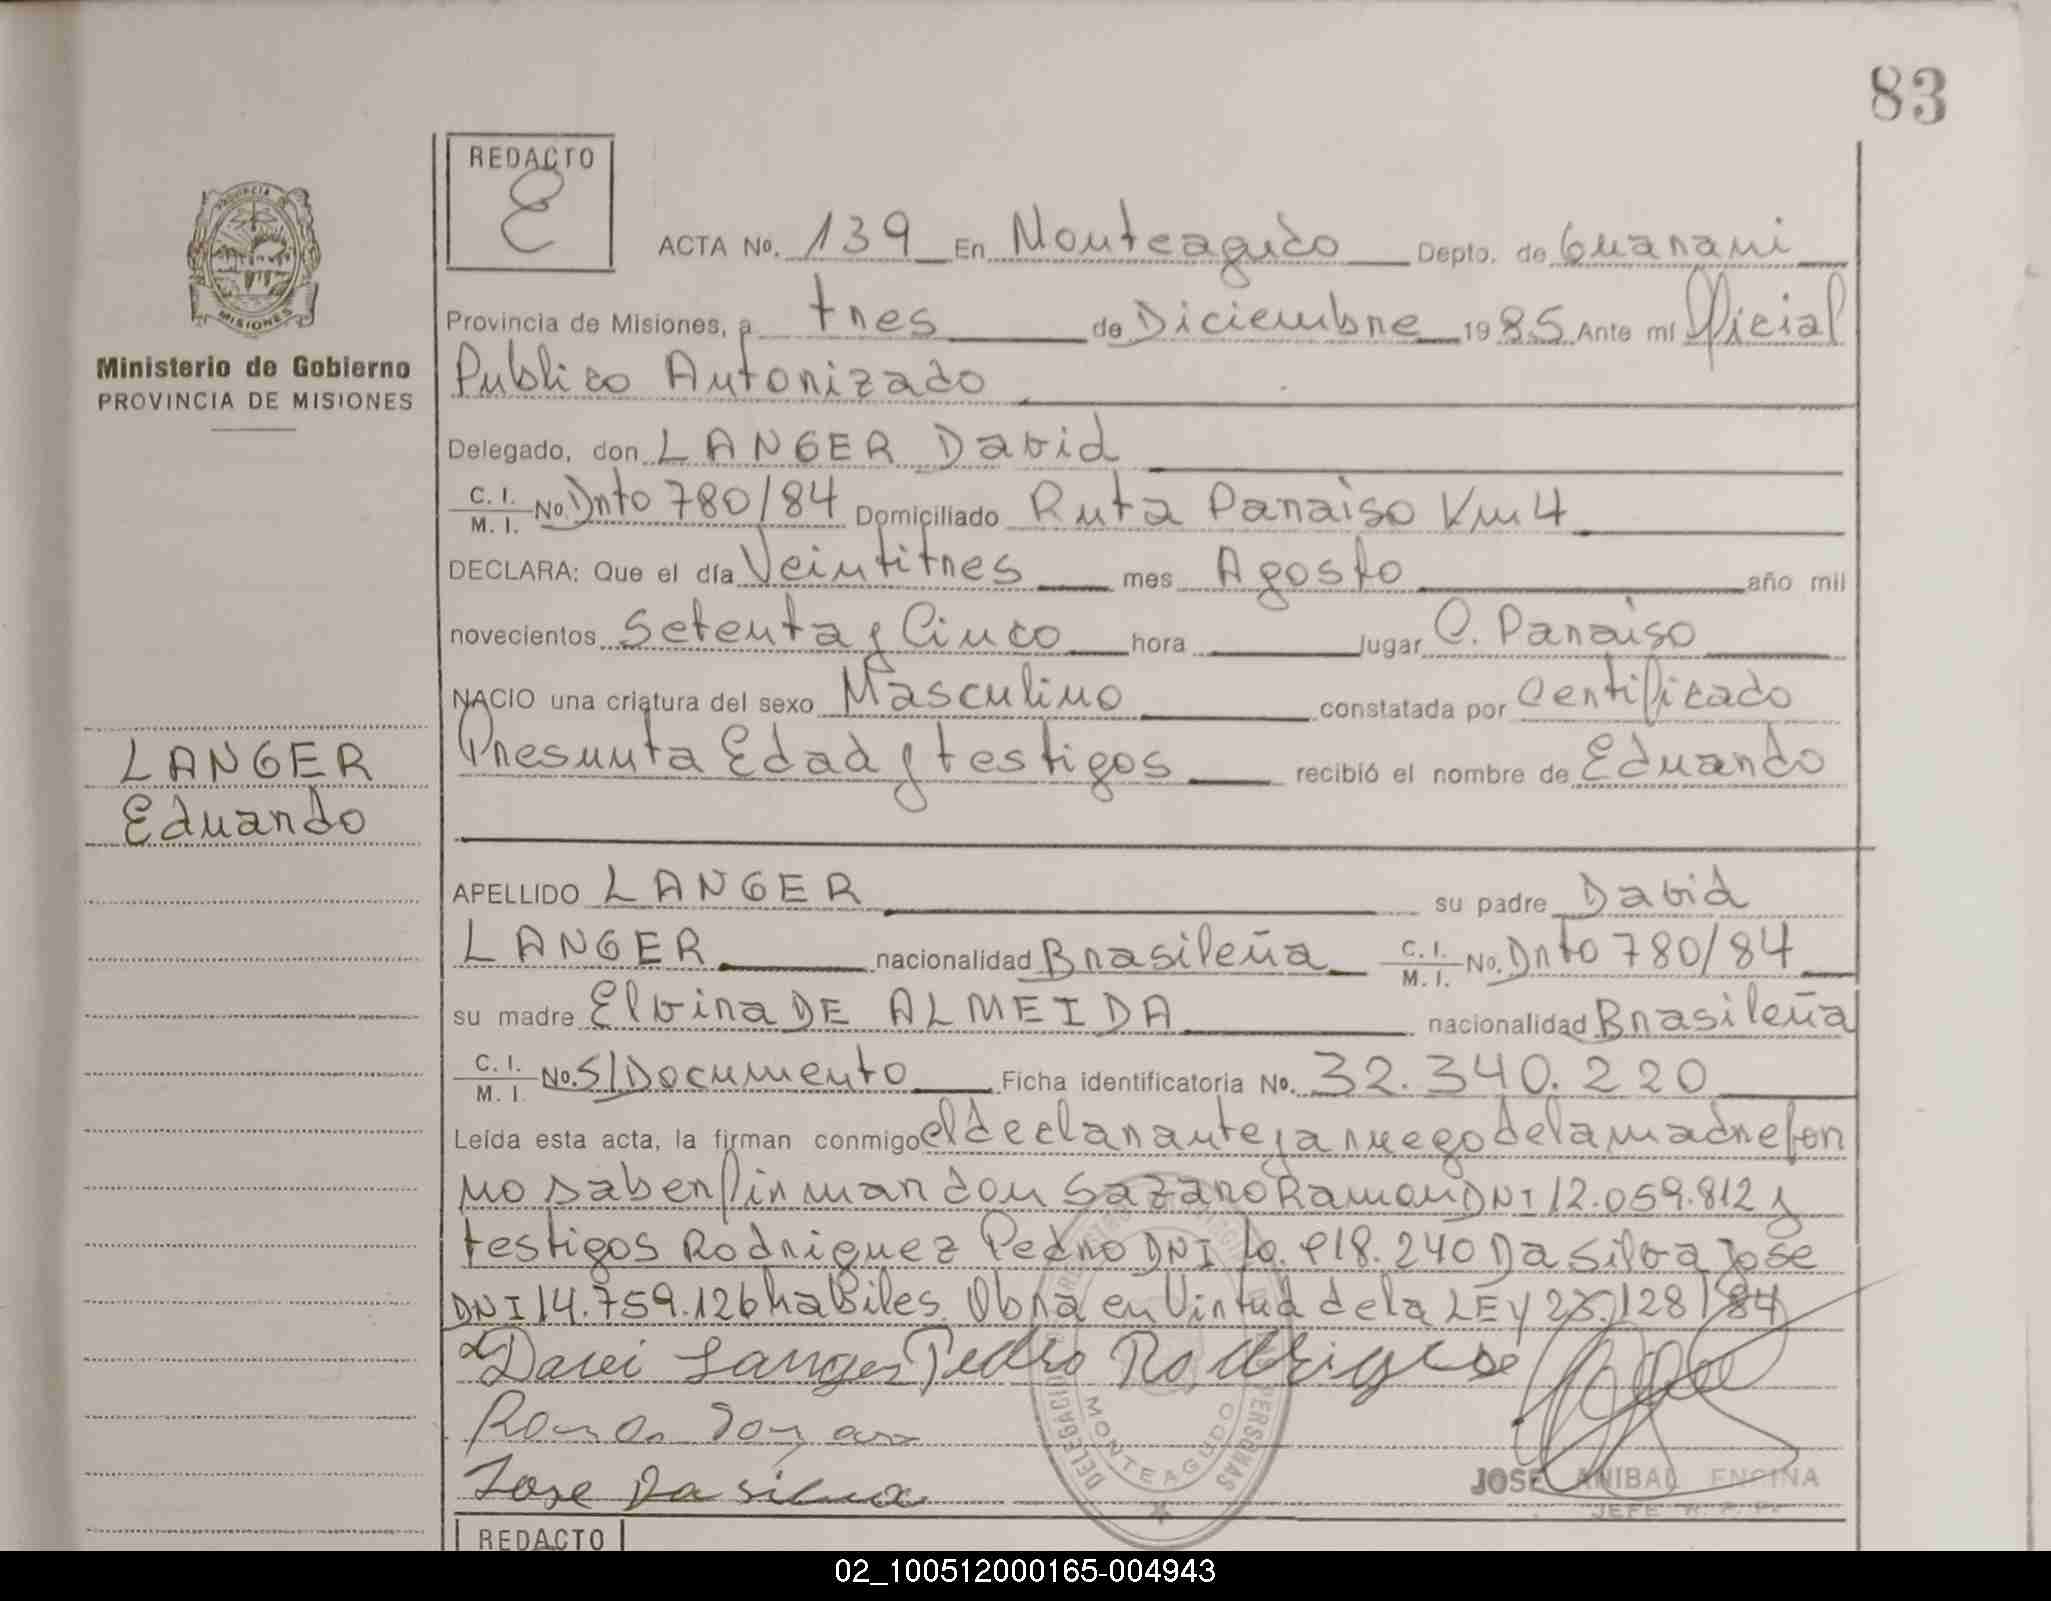 83
REDACTO
E
PROVINCIA
MISIONES
Ministerio de Gobierno
PROVINCIA DE MISIONES
ACTA No. 139 En Monteagudo Depto. de Guarani
Provincia de Misiones, a tres de Diciembre 1985 Ante mí Oficial
Publico Autorizado
Delegado, don LANGER David
C. I. M. I. No. Dnto 780/84 Domiciliado Ruta Paraiso Km 4
DECLARA: Que el día Veintitres mes Agosto año mil
novecientos Setenta y Cinco hora lugar C. Paraiso
NACIO una criatura del sexo Masculino constatada por Certificado
Presunta Edad y testigos recibió el nombre de Eduardo
LANGER
Eduardo
APELLIDO LANGER su padre David
LANGER nacionalidad Brasileña C. I. M. I. No. Dnto 780/84
su madre Elvira DE ALMEIDA nacionalidad Brasileña
C. I. M. I. No. S/Documento Ficha identificatoria No. 32.340.220
Leída esta acta, la firman conmigo el declarante, a ruego de la madre por
no saber firmar don Sazano Ramon DNI 12.059.812 y
testigos Rodriguez Pedro DNI 10. 918.240 Da Silva Jose
DNI 14.759.126 habiles. Obra en Virtud de la LEY 23.128/84
Davi Langer Pedro Rodrigues
Jose Da silva
MONTEAGUDO
JOSE ANIBAL ENCINA
JEFE R. P. P.
REDACTO
02_100512000165-004943